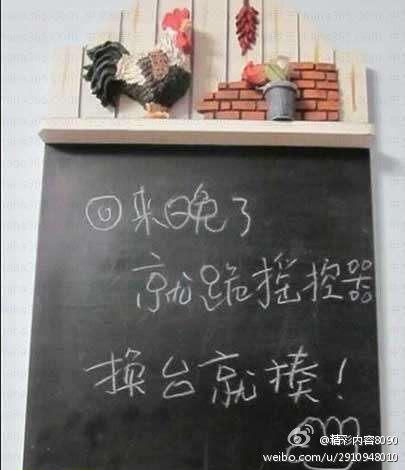 回来晚了
就跪摇控器
换台就揍!
@精彩内容8090
weibo.com/u/2910948010